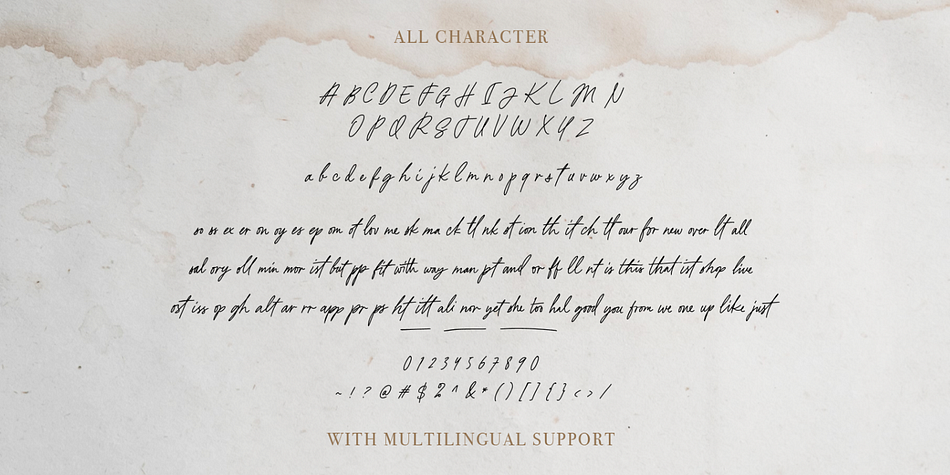 ALL CHARACTER
A B C D E F G H I J K L M N
O P Q R S T U V W X Y Z
a b c d e f g h i j k l m n o p q r s t u v w x y z
oo ss ex er on oy es ep om ot lov me sk ma ck tl nk st ion th it ch tt our for new over lt all
sal ory oll min mor ist but pp fit with way man pt and or ff ll nt is this that ist shop live
ost iss op gh alt ar rr app pr ps ht itt ali nor yet she too hal good you from we one up like just
0 1 2 3 4 5 6 7 8 9 0
~ ! ? @ # $ 2 ^ & * ( ) [ ] { } < > /
WITH MULTILINGUAL SUPPORT